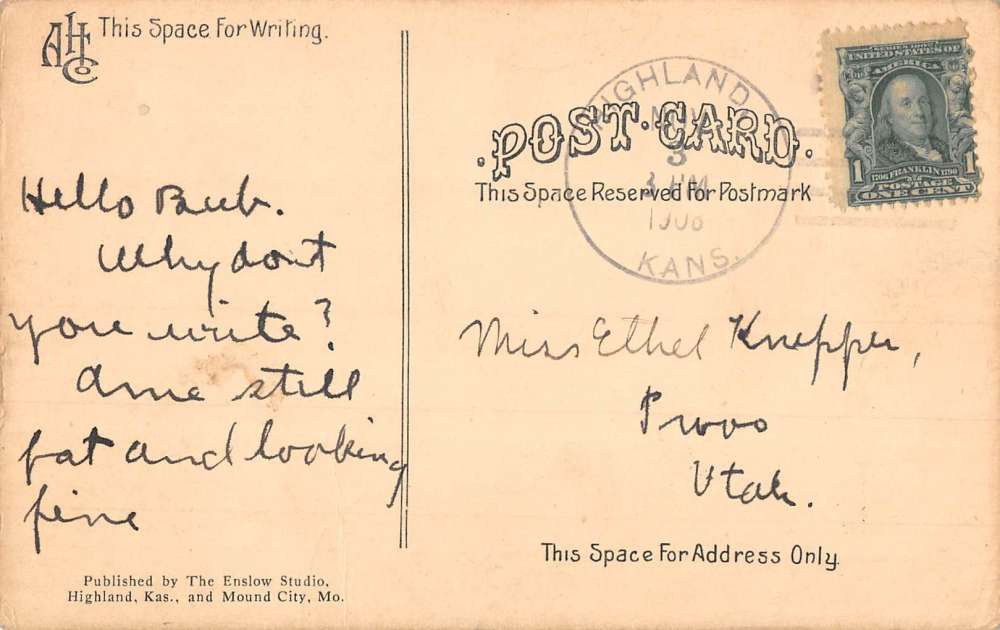 AH Co
This Space For Writing.
Hello Bub.
Why dont
you write?
Ame still
fat and looking
fine
Published by The Enslow Studio,
Highland, Kas., and Mound City, Mo.
HIGHLAND
NOV
3
3 PM
1908
KANS.
POST CARD.
This Space Reserved For Postmark
SERIES 1902
UNITED STATES OF
AMERICA
1 1
1706 FRANKLIN 1790
POSTAGE
ONE CENT
Miss Ethel Knepper,
Provo
Utah.
This Space For Address Only.